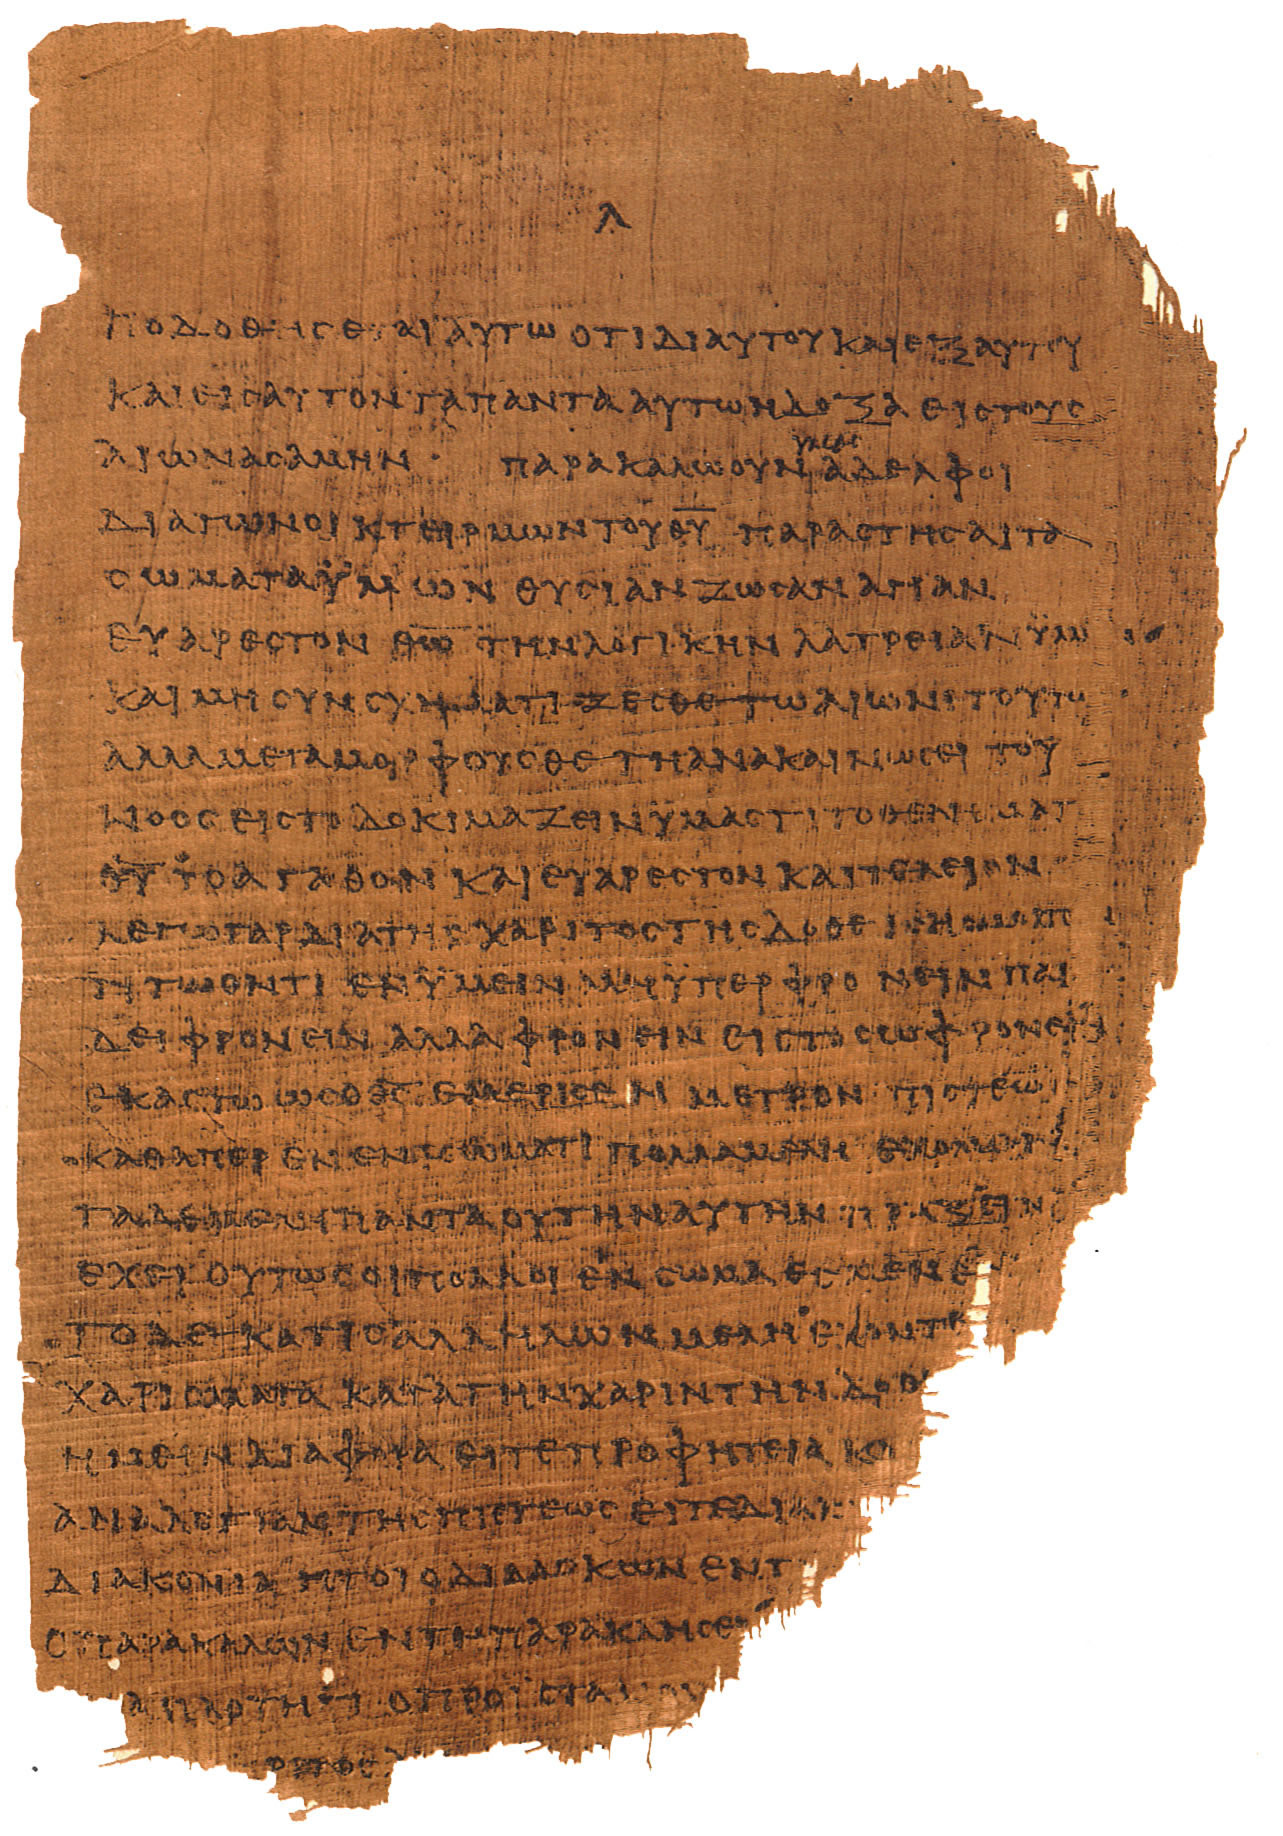 λ
ποδοθησεται αυτω οτι δι αυτου και εξ αυτου
και εις αυτον τα παντα αυτω η δοξα εις τους
αιωνας αμην · παρακαλω ουν ϋμας αδελφοι
δια των οικτειρμων του θ̅υ̅ παραστησαι τα
σωματα ϋμων θυσιαν ζωσαν αγιαν
ευαρεστον θ̅ω̅ την λογικην λατρειαν ϋμω
και μη συνσχηματιζεσθε τω αιωνι τουτω
αλλα μεταμορφουσθε τη ανακαινωσει του
νοος εις το δοκιμαζειν ϋμας τι το θελημα τ
θ̅υ̅ το αγαθον και ευαρεστον και τελειον
λεγω γαρ δια της χαριτος της δοθεισης μοι π
τι τω οντι εν ϋμειν μη ϋπερφρονειν παρ
δει φρονειν αλλα φρονειν εις το σωφρονειν
εκαστω ως ο θ̅ς̅ εμερισεν μετρον πιστεω
καθαπερ εν ενι σωματι πολλα μελη εχομεν
τα δε μελη παντα ου την αυτην πραξιν
εχει ουτως οι πολλοι εν σωμα εσμεν εν
το δε κατ ις αλληλων μελη εχοντ
χαρισματα κατα την χαριν την δοθ
ημειν διαφορα ειτε προφητεια κ
αναλογιαν της πιστεως ειτε διακ
διακονια ητοι ο διδασκων εν τ
ο παρακαλων εν τη παρακλησει
απλοτητι ο προϊσταμενο
ροτης